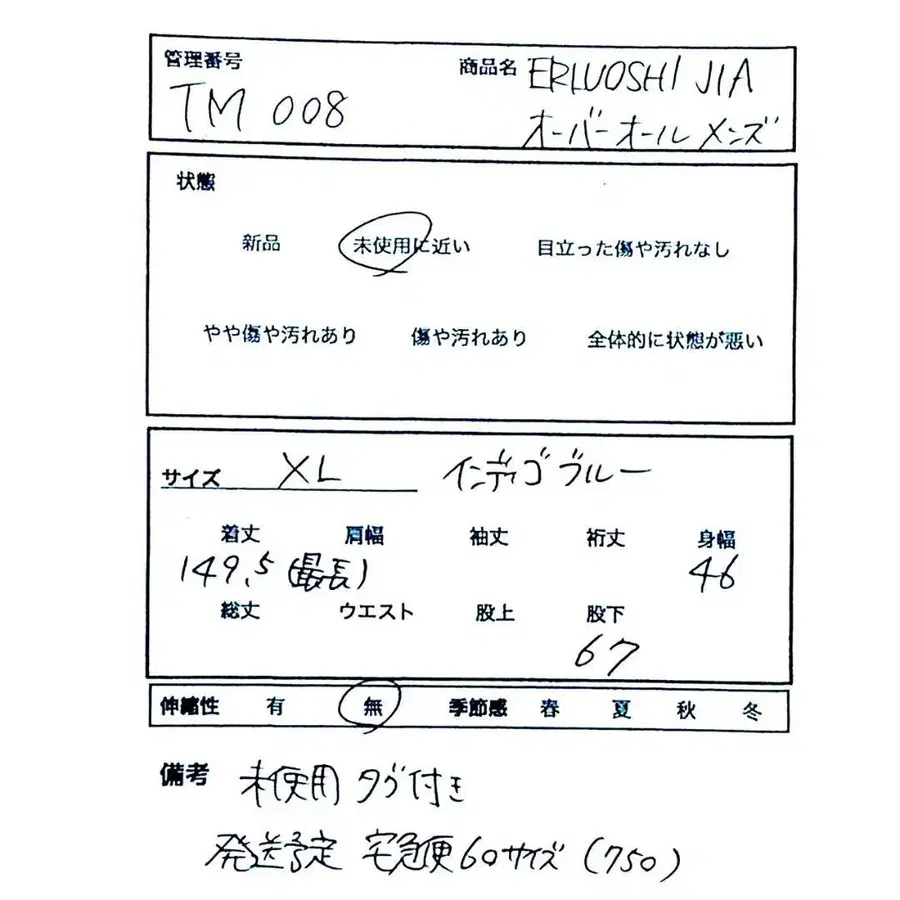 管理番号 商品名 ERLUOSHI JIA
TM 008 オーバーオール メンズ
状態
新品 未使用に近い 目立った傷や汚れなし
やや傷や汚れあり 傷や汚れあり 全体的に状態が悪い
サイズ XL インディゴブルー
着丈 肩幅 袖丈 裄丈 身幅
149.5 (最長) 46
総丈 ウエスト 股上 股下
67
伸縮性 有 無 季節感 春 夏 秋 冬
備考 未使用 タグ付き
発送予定 宅急便60サイズ (750)